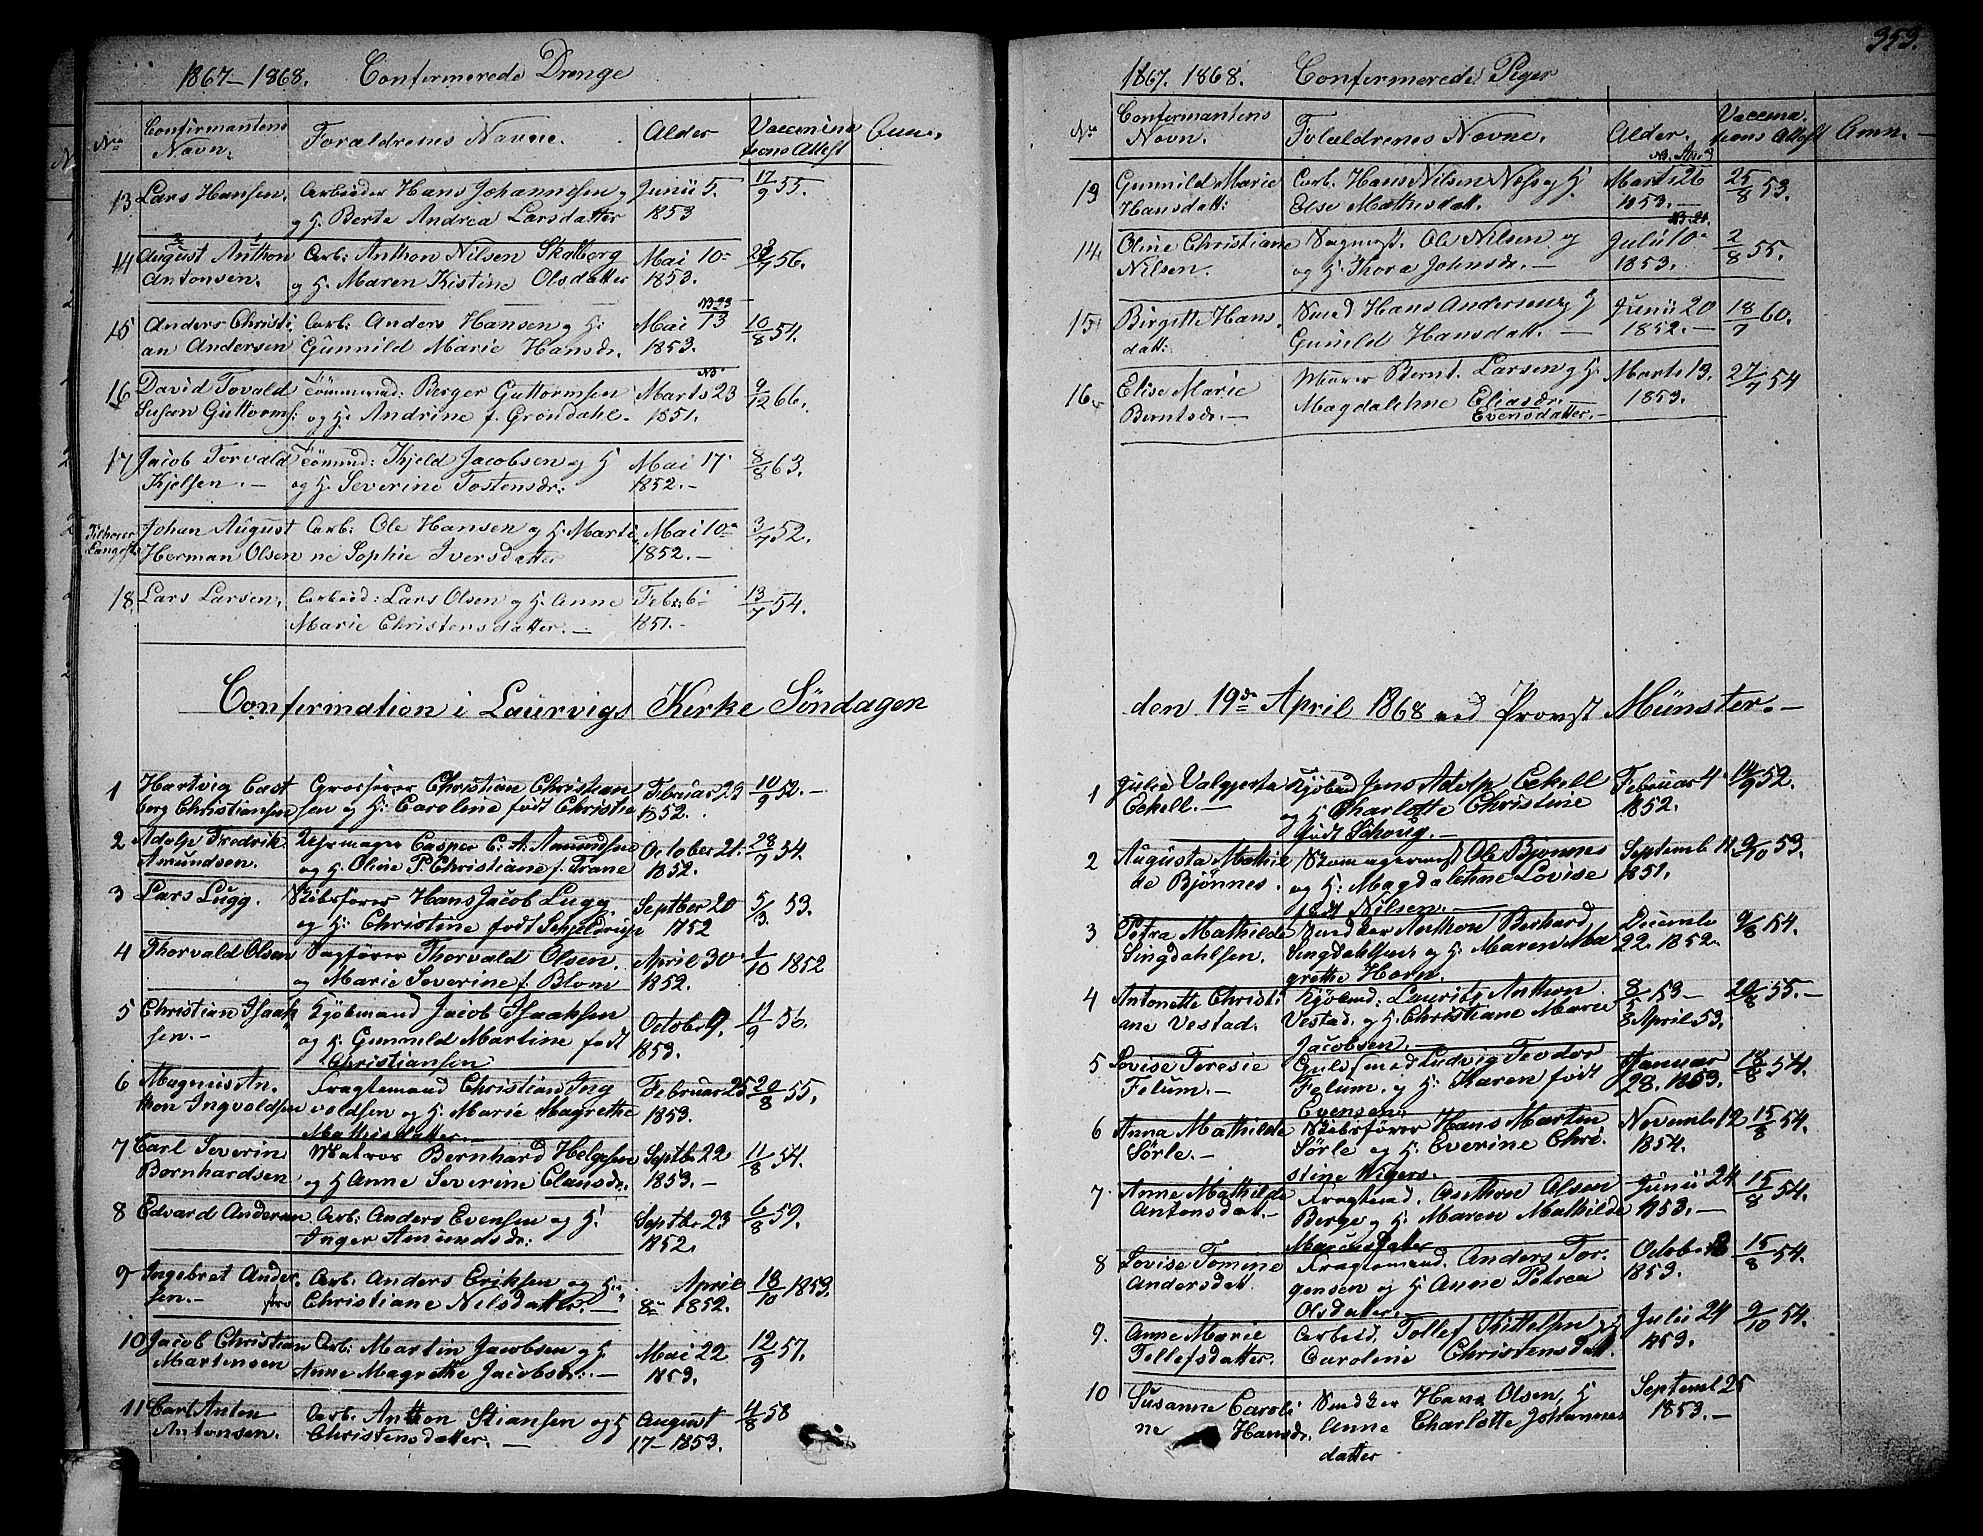 1867-1868. Confirmerede Drenge
No Confirmantens Navn. Forældrenes Navne. Alder Vaccinations Attest Anm.
13 Lars Hansen. Arbeider Hans Johannesen og Junii 5. 17/9 55.
og H. Berte Andrea Larsdatter 1853
14 August Anthon Arb: Anthon Nilsen Skalberg Mai 10 56.
Antonsen. og H. Maren Kistine Olsdatter 1853.
15 Anders Christi Arb: Anders Hansen og H: Mai 13 10/8 54.
an Andersen Gunnild Marie Hansdr. 1853.
16 David Tovald Tömmermd: Berger Guttormsen Marts 23 9/12 66.
Susan Guttorms: og H. Andrine f. Gröndahl. 1851.
17 Jacob Torvald Tömmd: Kjeld Jacobsen og H Mai 17 8/8 63.
Kjelsen.- og H. Severine Tostensdr: 1852.-
Johan August Arb: Ole Hansen og H. Marti Mai 10 3/7 52.
Herman Olsen ne Sophie Iversdatter 1852.-
18. Lars Larsen. Arbeid: Lars Olsen og H. Anne Febr: 6 13/7 54.
Marie Christensdatter.- 1851.-
Confirmation i Laurvigs Kirke Søndagen
1 Hartvig Cast Christian Christian Februar 23 10/9 52.-
berg Christiansen sen og H: Caroline født Christie 1852.
2 Adolp Fredrik Uhrmager Casper C: A. Amundsen October 21. 28/7 54.
Amundsen. og H. Oline P. Christiane f. Trane 1852.
3 Lars Lugg. Skibsfører Hans Jacob Lugg. Septber 20 5/3 53.
og H: Christine født Schjeldrup 1852
4 Thorvald Olsen Sagfører Thorvald Olsen. April 30 1/10 1852
og Marie Severine f: Blom 1852.
5 Christian Isaak Kjøbmand Jacob Isaaksen Octobr 9. 11/9 56.
sen.- og H. Gunnild Martine født 1853.
Christiansen
6 Magnus An. Fragtemand Christian Ing Februar 25 20/8 55.
thon Ingvoldsen voldsen og H. Marie Magrethe 1853.
Mathisdatter.-
7 Carl Severin Matros Bernhard Helgesen Septbr 22 11/8 54.
Bernhardsen og H Anne Severine Clausdr. 1853.-
8 Edvard Andersen Arb: Anders Evensen og H: Septbr 23 6/8 59.
Inger Amundsdr: 1852.
9 Ingebret Ander Arb: Anders Eriksen og H: April 18/10 1853.
sen.- Christiane Nilsdatter.- 8 1852.
10 Jacob Christian Arb: Martin Jacobsen og H Mai 22 12/9 57.
Martinsen Anne Magrethe Jacobsdr:- 1853.
11 Carl Anton Arb: Anthon Stiansen og H August 4/8 58
Antonsen. Christensdatter.- 17-1853.
353.
1867. 1868. Confirmerede Piger
No Confirmantens Navn. Forældrenes Navne. Alder. Vaccinations Attest Anm.-
13 Gunnild Marie Arb. Hans Nilsen og H. Marts 26 25/8 53.
Hansdatt: Else Mathisdatt. 1853.-
14 Oline Christiane Ole Nilsen og Julii 10 2/8 55.
Nilsen. og H. Thora Johnsdr.- 1853.
15 Birgitte Hans Smed Hans Andersen og H Junii 20 18/7 60.
datt: Gunild Hansdatt.- 1852.-
16 Elise Marie Murer Bernt. Larsen og H. Marts 13. 27/7 54
Berntsdr.- Magdalehne Eliasdr.- 1853.
Evensdatter.-
den 19de April 1868 ved Provst Münster.-
1 Julie Valgjerta Kjøbmd Jens Adolp Eckell Februar 4 14/9 52.
Eckell.- og H Charlotte Christine 1852.
født Schoug.-
2 Augusta Mathil Skomagermst Ole Bjønnes Septemb 11 9/10 53.
de Bjønnes. og H: Magdalehne Lovise 1851.
født Nilsen.-
3 Petra Mathilde Snedker Anthon Berhard Decembr 9/8 54.
Singdahlsen. Singdahlsen og H: Maren Ma 22. 1852.
grethe Horn.
4 Antonette Christi Kjøbmd: Laurits Anthon 8/5 53- 20/8 55.-
ane Vestad. Vestad. og H: Christiane Marie 8 April 53.
Jacobsen.-
5 Lovise Teresie Gulsmed Ludvig Teodor Januar 18/8 54.
Felum.- Felum. og H Karen født 28. 1853.
Evensen.
6 Anna Mathilde Skibsfører Hans Marten Novembr 12 15/8 54.
Sørle.- Sørle og H: Everine Chri 1854.
stine Wigers.
7 Anne Mathilde Fragtemd. Anthon Olsen Junii 24 15/8 54.
Antonsdat.- Berge og H: Maren Mathilde 1853.-
Marcusdatter
8 Lovise Tomine Fragtemand. Anders Tor. Octobr 15/8 54.
Andersdatt. gensen og H Anne Petrea 1853.
Olsdatter.
9. Anne Marie Arbeid. Tollef Kittelsen og Julii 24 9/10 54.
Tollefsdatter. Caroline Christensdatt. 1853.
10 Susanne Caroli Snedker Hans Olsen, H Septemb 25
ne Hansdr. Anne Charlotte Johannes 1853.-
datter